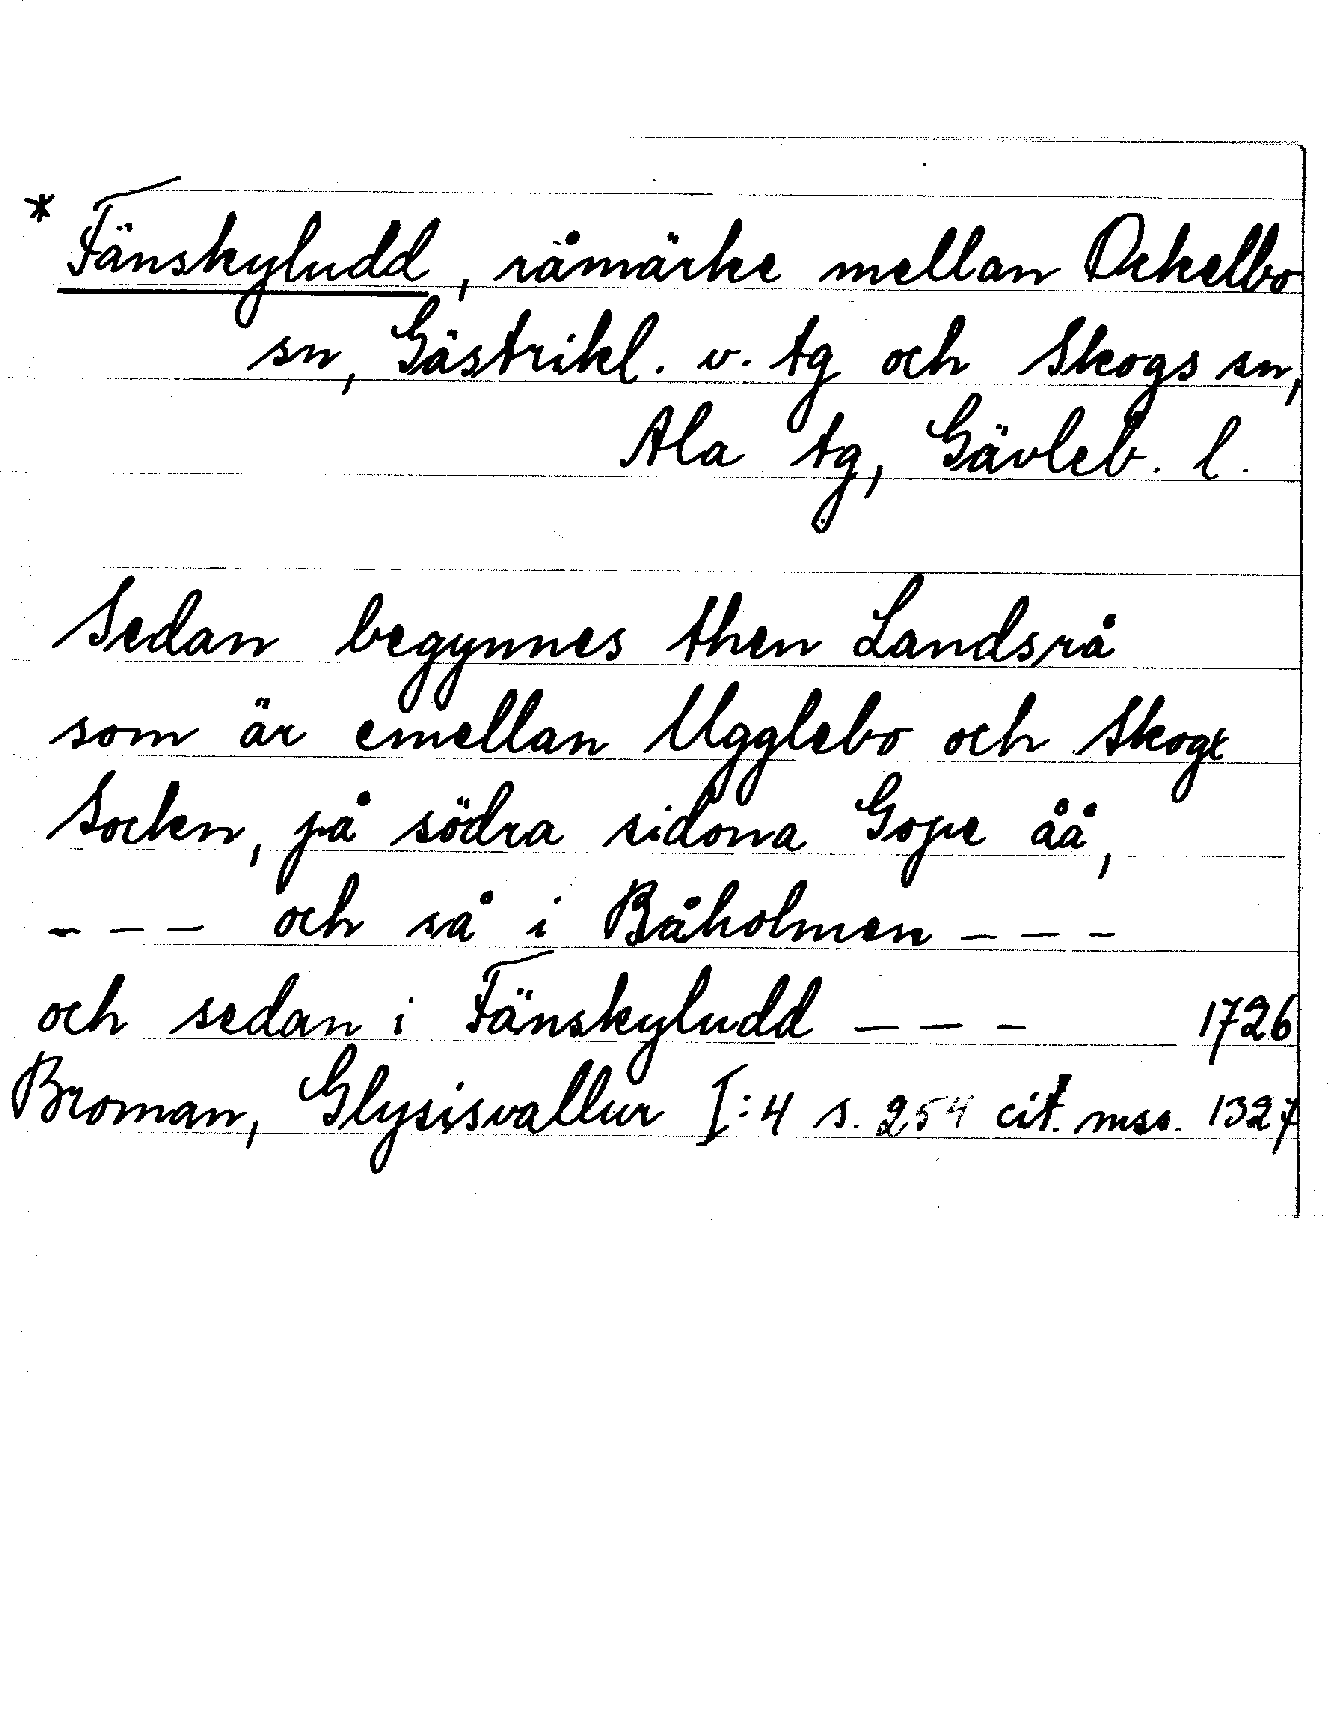 * Fänskyludd, råmärke mellan Ockelbo
sn, Gästrikl. v. tg och Skogs sn,
Ala tg, Gävleb. l.
Sedan begynnes then Landsrå
som är emellan Ugglebo och Skogx
Socken, på södra sidona Gope åå,
--- och så i Båholmen ---
och sedan i Fänskyludd --- 1726
Broman, Glysisvallur I:4 s. 254 cit. mss. 1327